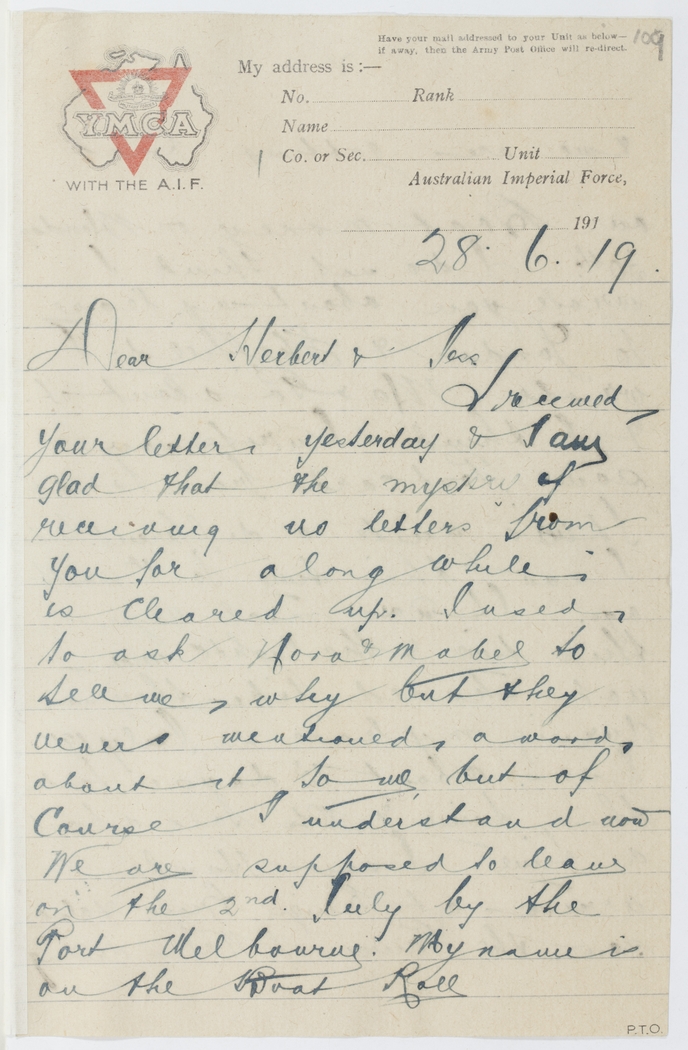 Have your mail addressed to your Unit as below—
if away, then the Army Post Office will re-direct.
109
My address is :—
No. Rank
Name
Co. or Sec. Unit
Australian Imperial Force,
YMCA
WITH THE A.I.F.
191
28. 6. 19.
Dear Herbert & Jess
I received
your letter yesterday & I am
glad that the mystery of
receiving no letters from
you for a long while
is cleared up. I used
to ask Nora & Mabel to
tell me, why but they
never mentioned a word
about it to me, but of
Course I understand now
We are supposed to leave
on the 2nd. July by the
Port Melbourne. My name is
on the Boat Roll
P.T.O.